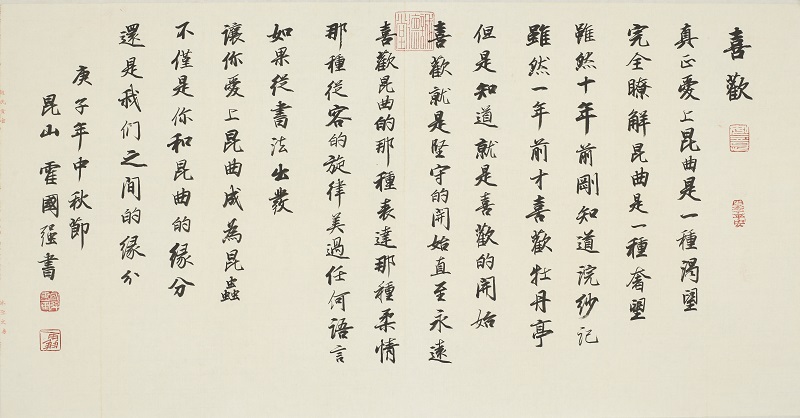 喜歡
真正愛上昆曲是一種渴望
完全瞭解昆曲是一種奢望
雖然十年前剛知道浣紗記
雖然一年前才喜歡牡丹亭
但是知道就是喜歡的開始
喜歡就是堅守的開始直至永遠
喜歡昆曲的那種表達那種柔情
那種從容的旋律美過任何語言
如果從書法出發
讓你愛上昆曲成為昆蟲
不僅是你和昆曲的緣分
還是我们之间的緣分
庚子年中秋節
昆山霍國强書